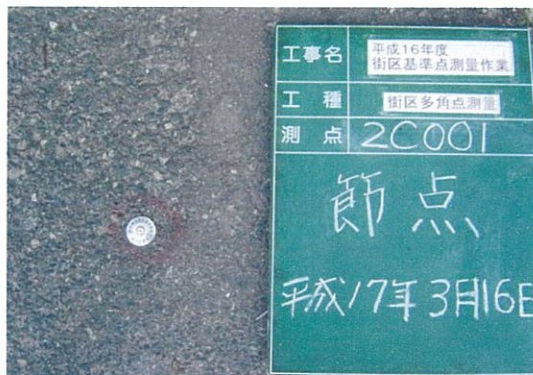 工事名
平成16年度
街区基準点測量作業
工種
街区多角点測量
測点
2C001
節点
平成17年3月16日